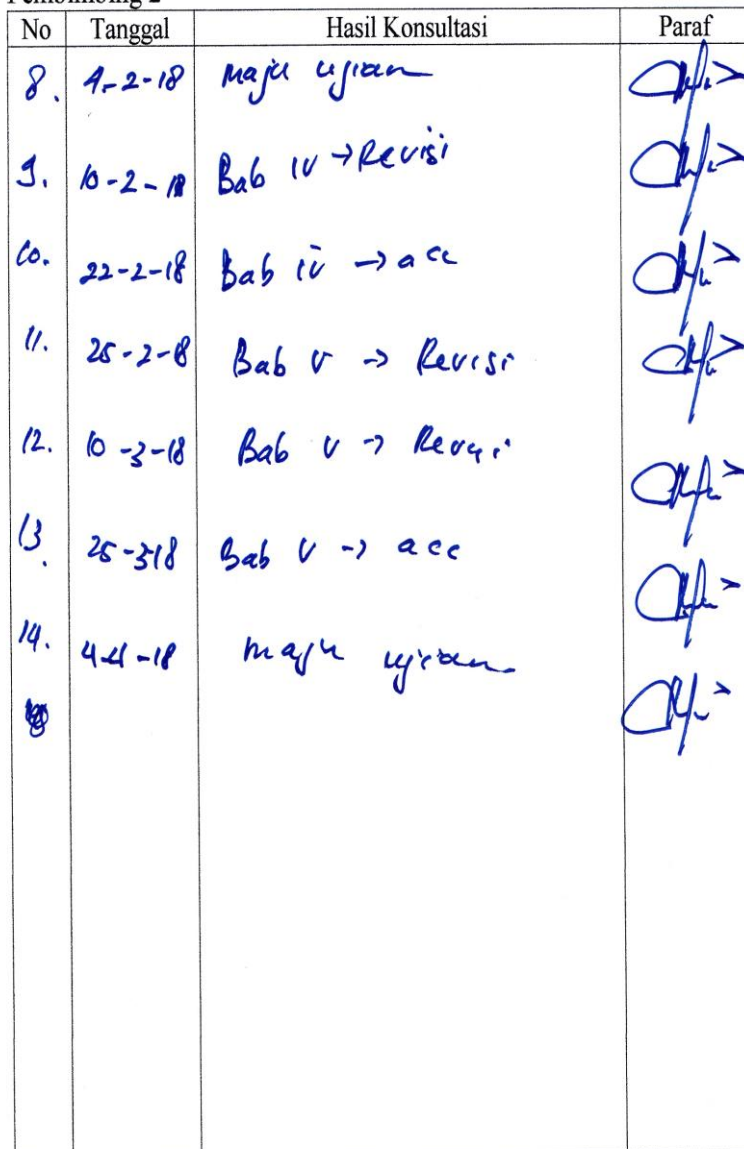 Pembimbing 2
No Tanggal Hasil Konsultasi Paraf
8. 4-2-18 maju ujian
9. 10-2-18 Bab IV → Revisi
10. 22-2-18 Bab iv → acc
11. 25-2-18 Bab V → Revisi
12. 10-3-18 Bab V → Revisi
13. 25-3-18 Bab V → acc
14. 4-4-18 maju ujian